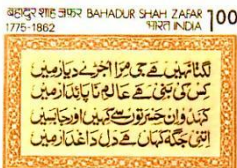 बहादुर शाह ज़फ़र BAHADUR SHAH ZAFAR 100
1775-1862 भारत INDIA
لگتا نہیں ہے جی مرا اجڑے دیار میں
کس کی بنی ہے عالم ناپائدار میں
کہہ دو ان حسرتوں سے کہیں اور جا بسیں
اتنی جگہ کہاں ہے دل داغدار میں